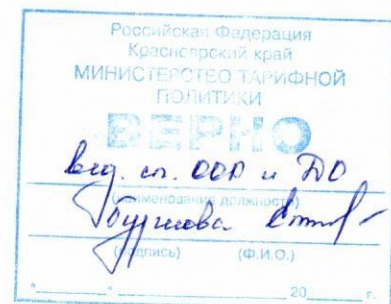 Российская Федерация
Красноярский край
МИНИСТЕРСТВО ТАРИФНОЙ
ПОЛИТИКИ
ВЕРНО
вед. сп. ООР и ДО
(наименование должности)
(подпись) (Ф.И.О.)
"___" ______ 20___ г.